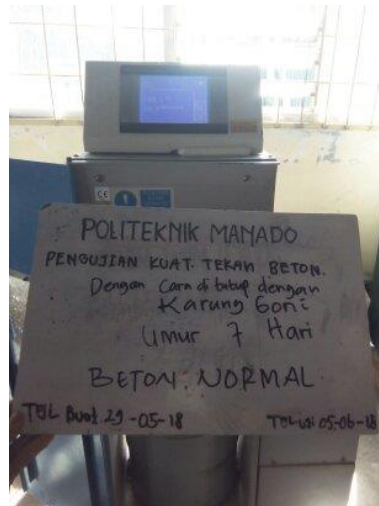 CE
POLITEKNIK MANADO
PENGUJIAN KUAT TEKAN BETON.
Dengan Cara di tutup dengan
Karung Goni
Umur 7 Hari
BETON NORMAL
TGL Buat 29-05-18
TGL uji 05-06-18